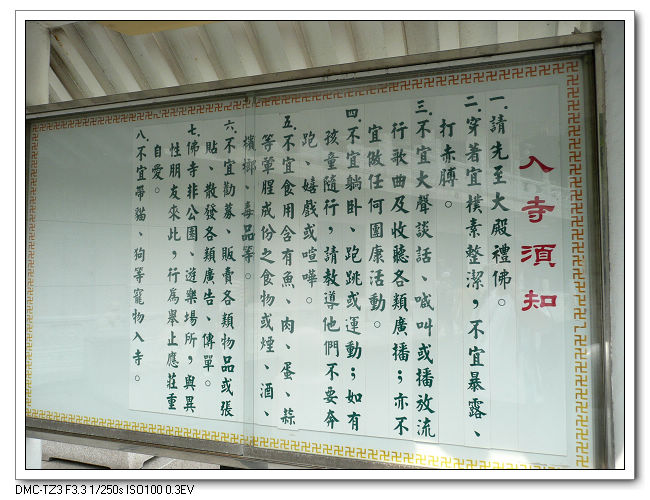 入寺須知
一.請先至大殿禮佛。
二.穿着宜樸素整潔，不宜暴露、
打赤膊。
三.不宜大聲談話、喊叫或播放流
行歌曲及收聽各類廣播；亦不
宜做任何團康活動。
四.不宜躺卧、跑跳或運動；如有
孩童隨行，請教導他們不要奔
跑、嬉戲或喧嘩。
五.不宜食用含有魚、肉、蛋、蒜
等葷腥成份之食物或煙、酒、
檳榔、毒品等。
六.不宜勸募、販賣各類物品或張
貼、散發各類廣告、傳單。
七.佛寺非公園、遊樂場所，與異
性朋友來此，行為舉止應莊重
自愛。
八.不宜帶貓、狗等寵物入寺。
DMC-TZ3 F3.3 1/250s ISO100 0.3EV